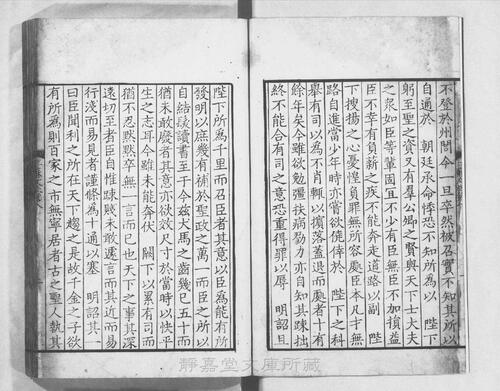 不登於州閭今一旦卒然被召實不知其所以
自通於　朝廷承命悸恐不知所為以　陛下
躬至聖之資又有羣公卿之賢與天下士大夫
之衆如臣等輩固宜不少有臣無臣不加損益
臣不幸有負薪之疾不能奔走道路以副　陛
下搜揚之心憂惶負罪無所容處臣本凡才無
路自進當少年時亦嘗欲僥倖於　陛下之科
舉有司以為不肖輒以擯落蓋退而處者十有
餘年矣今雖欲勉彊扶病勠力亦自知其疎拙
終不能合有司之意恐重得罪以辱　明詔且
陛下所為千里而召臣者其意以臣為能有所
發明以庶幾有補於聖政之萬一而臣之所以
自結髮讀書至于今茲犬馬之齒幾已五十而
猶未敢廢者其意亦欲效尺寸於當時以快平
生之志耳今雖未能奔伏　闕下以累有司而
猶不忍默默卒無一言而已也天下之事其深
遠切至者臣自惟疎賤未敢遽言而其近而易
行淺而易見者謹條為十通以塞　明詔其一
曰臣聞利之所在天下趨之是故千金之子欲
有所為則百家之市無寧居者古之聖人執其
靜嘉堂文庫所藏